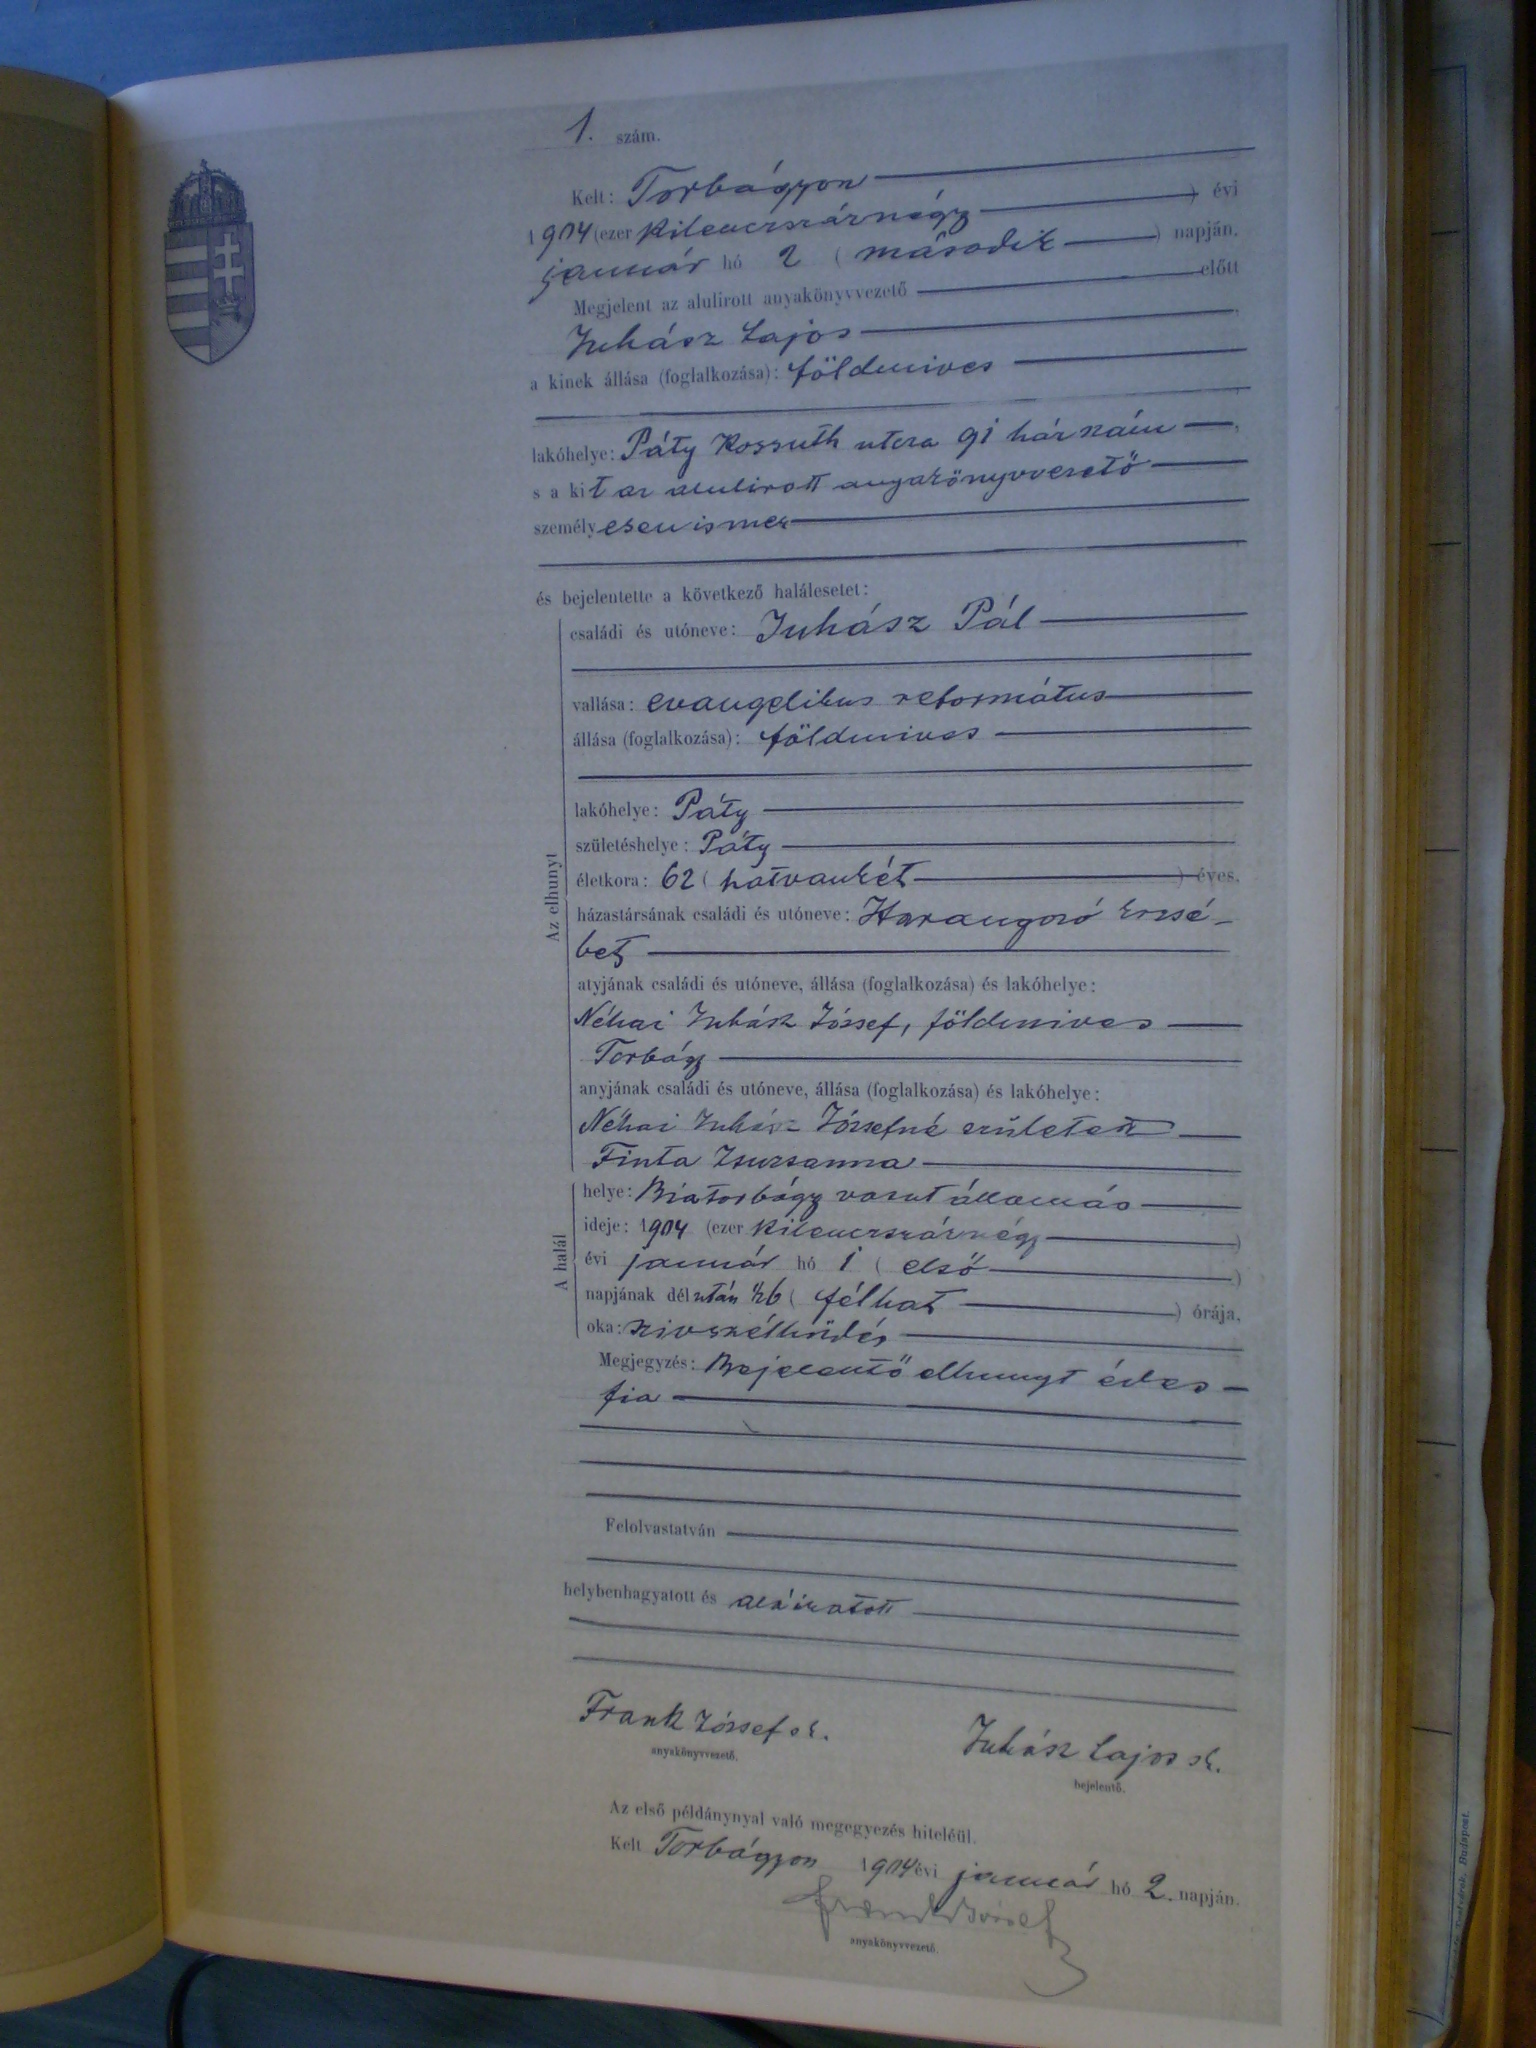 1. szám.
Kelt: Torbágyon
1904 (ezer kilenczszáznégy ) évi
január hó 2 ( második ) napján.
Megjelent az alulirott anyakönyvvezető előtt
Juhász Lajos
a kinek állása (foglalkozása): földmives
lakóhelye: Páty Kossuth utcza 91 házszám
s a kit az alulirott anyakönyvvezető
személyesen ismer
és bejelentette a következő halálesetet:
Az elhunyt
családi és utóneve: Juhász Pál
vallása: evangelikus református
állása (foglalkozása): földmives
lakóhelye: Páty
születéshelye: Páty
életkora: 62 ( hatvankét ) éves.
házastársának családi és utóneve: Harangozó Erzsé-
bet
atyjának családi és utóneve, állása (foglalkozása) és lakóhelye:
Néhai Juhász József, földmives
Torbágy
anyjának családi és utóneve, állása (foglalkozása) és lakóhelye:
Néhai Juhász Józsefné született
Finta Zsuzsanna
A halál
helye: Biatorbágy vasut állomás
ideje: 1904 (ezer kilenczszáznégy )
évi január hó 1 ( első )
napjának délután ½6 ( félhat ) órája.
oka: szivszélhüdés
Megjegyzés: Bejelentő elhunyt édes
fia
Felolvastatván
helybenhagyatott és aláiratott
Frank József sk. Juhász Lajos sk.
anyakönyvvezető. bejelentő.
Az első példánynyal való megegyezés hiteléül.
Kelt Torbágyon 1904 évi január hó 2. napján.
Frank József
anyakönyvvezető.
Budapest.